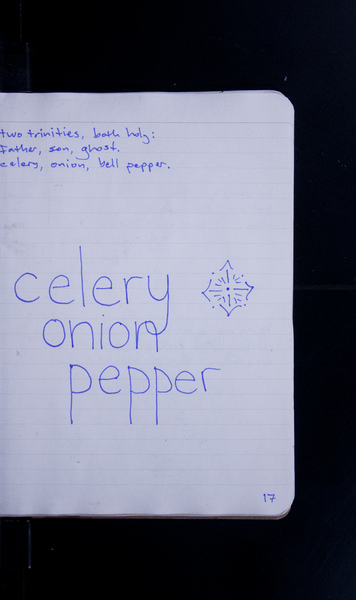 two trinities, both holy:
Father, son, ghost.
celery, onion, bell pepper.
celery
onion
pepper
17